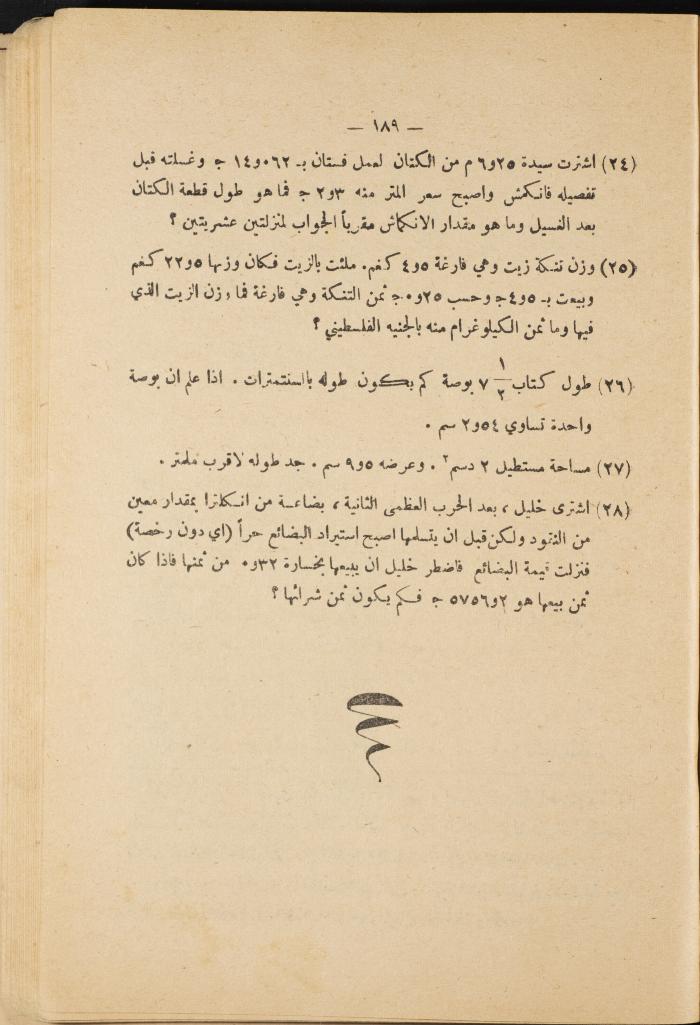 — ١٨٩ —
(٢٤) اشترت سيدة ٦و٢٥ م من الكتان لعمل فستان بـ ١٤و٠٦٢ ج وغسلته قبل
تفصيله فانكمش واصبح سعر المتر منه ٢و٣ ج فما هو طول قطعة الكتان
بعد الغسيل وما هو مقدار الانكماش مقرباً الجواب لمنزلتين عشريتين ؟
(٢٥) وزن تنكة زيت وهي فارغة ٤و٥ كغم. ملئت بالزيت فكان وزنها ٢٢و٥ كغم
وبيعت بـ ٤و٥ ج وحسب ٠و٢٥ ج ثمن التنكة وهي فارغة فما وزن الزيت الذي
فيها وما ثمن الكيلوغرام منه بالجنيه الفلسطيني ؟
(٢٦) طول كتاب ٧ ١/٢ بوصة كم يكون طوله بالسنتمترات . اذا علم ان بوصة
واحدة تساوي ٢و٥٤ سم .
(٢٧) مساحة مستطيل ٢ دسم٢ . وعرضه ٩و٥ سم . جد طوله لاقرب ملمتر .
(٢٨) اشترى خليل ، بعد الحرب العظمى الثانية ، بضاعة من انكلترا بمقدار معين
من النقود ولكن قبل ان يتسلمها اصبح استيراد البضائع حراً (اي دون رخصة)
فنزلت قيمة البضائع فاضطر خليل ان يبيعها بخسارة ٠و٣٢ من ثمنها فاذا كان
ثمن بيعها هو ٥٧٥٦و٢ ج فكم يكون ثمن شرائها ؟